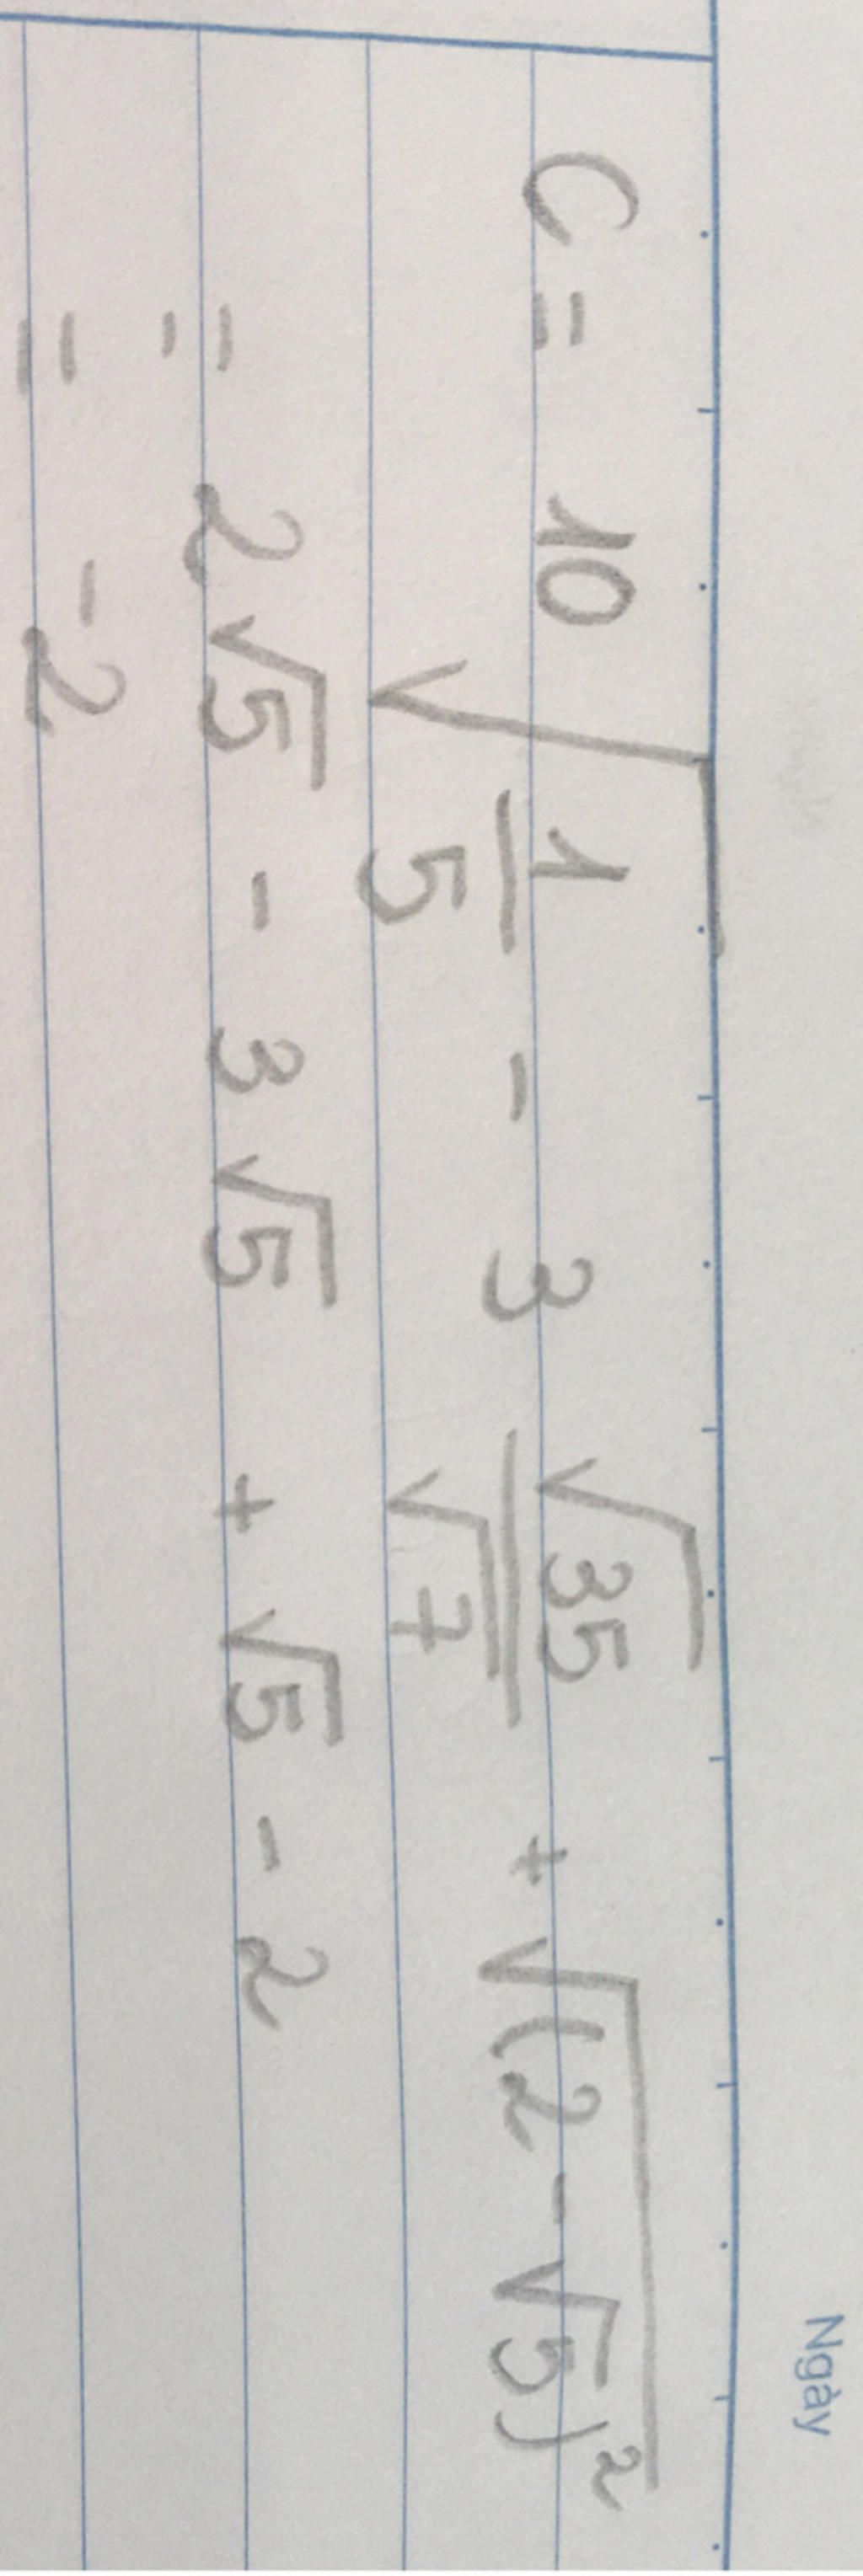 Ngày
C = 10√(1/5) - 3 √35/√7 + √((2 - √5)²)
= 2√5 - 3√5 + √5 - 2
= -2